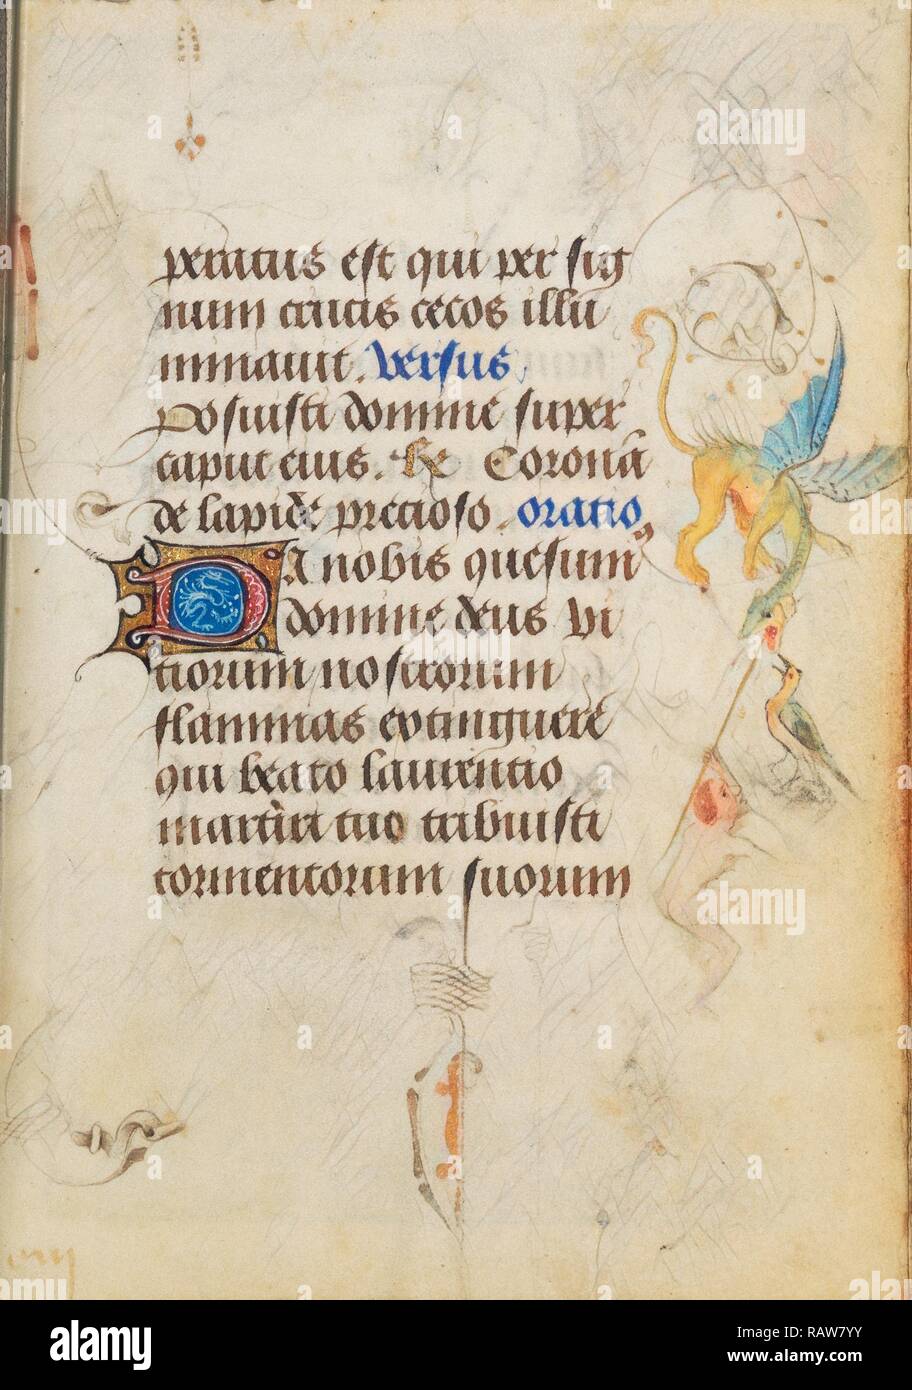 peratus est qui per sig
num crucis cecos illu
minauit. versus
Posuisti domine super
caput eius. R Coronā
de lapide precioso. oratio
DA nobis quesum9
domine deus vi
tiorum nostrorum
flammas extinguere
qui beato laurentio
martiri tuo tribuisti
tormentorum suorum
alamy
Image ID: RAW7YY
www.alamy.com